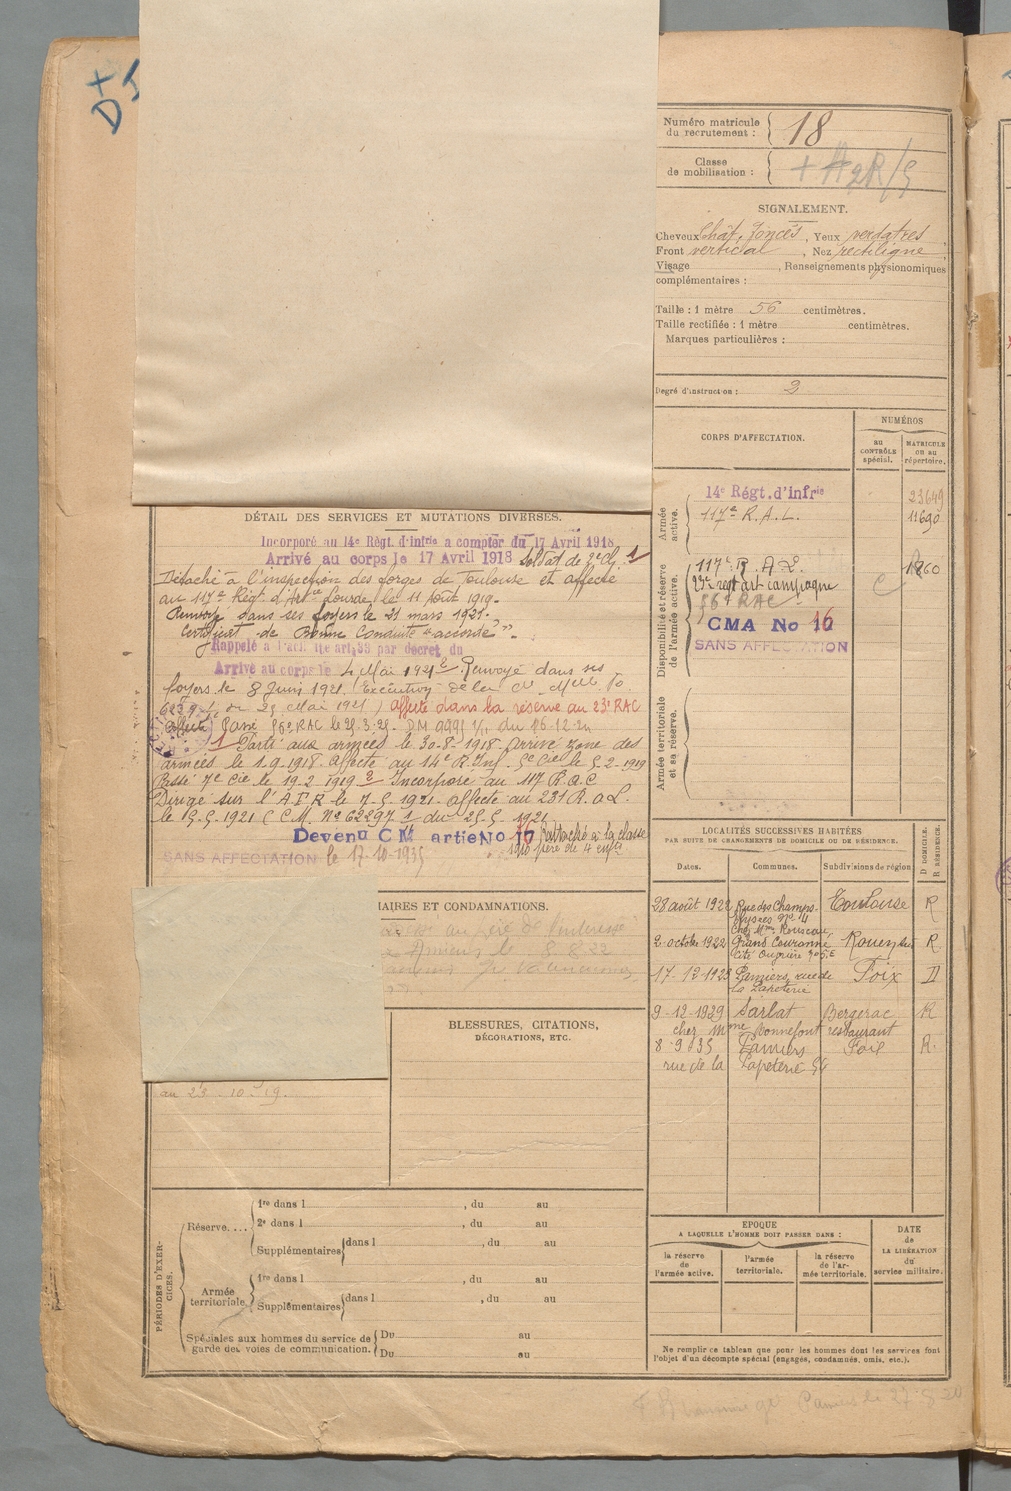 +
D
Numéro matricule
du recrutement :
18
Classe
de mobilisation :
SIGNALEMENT.
Cheveux Chat. foncés, Yeux verdatres
Front vertical, Nez rectiligne
Visage , Renseignements physionomiques
complémentaires :
Taille : 1 mètre 56 centimètres.
Taille rectifiée : 1 mètre centimètres.
Marques particulières :
Degré d'instruction : 3
CORPS D'AFFECTATION.
NUMÉROS
au
CONTRÔLE
spécial.
MATRICULE
ou au
répertoire.
Armée
active.
14e Régt. d'infrie 23649
117e R.A.L. 11690
Disponibilité et réserve
de l'armée active.
117e R.A.L.
23e regt art campagne
56e RAC
CMA No 16
SANS AFFECTATION
Armée territoriale
et sa réserve.
DÉTAIL DES SERVICES ET MUTATIONS DIVERSES.
Incorporé au 14e Régt. d'infrie a compter du 17 Avril 1918
Arrivé au corps le 17 Avril 1918 Soldat de 2e cl. 1
Détaché à l'inspection des forges de Toulouse et affecté
au 117e Régt d'Artie Lourde, le 11 Août 1919.
Renvoyé dans ses foyers le 21 mars 1921.
Certificat de Bonne Conduite "accordé".
Rappelé à l'acti art. 33 par décret du
Arrivé au corps le 4 Mai 1921 2 Renvoyé dans ses
foyers le 8 Juin 1921. (Exécution de la
du 25 Mai 1921) affecté dans la réserve au 23e RAC
Passé 56e RAC le 25.3.25. DM 9991 1/1 du 16-12-24
1 Parti aux armées le 30-8-1918. Arrivé zone des
armées le 1.9.1918. Affecté au 14e R. Inf. 5e Cie le 5.2.1919
Passé 7e Cie le 19.2.1919 2 Incorporé au 117 R.A.L
Dirigé sur l'A.F.R. le 7.5.1921. Affecté au 231 R.A.L.
le 9.5.1921 (C.M. No 62297 1/ du 25.5.1921
Devenu CM artie No 16 Rattaché à la classe
1910 père de 4 enfts
SANS AFFECTATION le 17-10-1935
AIRES ET CONDAMNATIONS.
au 23 10 19.
BLESSURES, CITATIONS,
DÉCORATIONS, ETC.
LOCALITÉS SUCCESSIVES HABITÉES
PAR SUITE DE CHANGEMENTS DE DOMICILE OU DE RÉSIDENCE.
Dates.
Communes.
Subdivisions de région
D. DOMICILE.
R. RÉSIDENCE.
28 août 1922 Rue des Champs- Toulouse R
Elysées No 4
Chez Mme Rousseau
2 octobre 1922 Grand Couronne Rouen R.
Cité Ouvrière
17-12-1923 Pamiers, rue de Foix D
la Papeterie
9-12-1929 Sarlat Bergerac R
chez Mme Bonnefont restaurant
8-9-35 Pamiers Foix R.
rue de la Papeterie
PÉRIODES D'EXER-
CICES.
Réserve....
1re dans l , du au
2e dans l , du au
Supplémentaires dans l , du au
Armée
territoriale.
1re dans l , du au
Supplémentaires dans l , du au
Spéciales aux hommes du service de
garde des voies de communication.
Du au
Du au
EPOQUE
A LAQUELLE L'HOMME DOIT PASSER DANS :
la réserve
de
l'armée active.
l'armée
territoriale.
la réserve
de l'ar-
mée territoriale.
DATE
de
LA LIBÉRATION
du
service militaire.
Ne remplir ce tableau que pour les hommes dont les services font
l'objet d'un décompte spécial (engagés, condamnés, omis, etc.).
Pamiers le 27-8-20